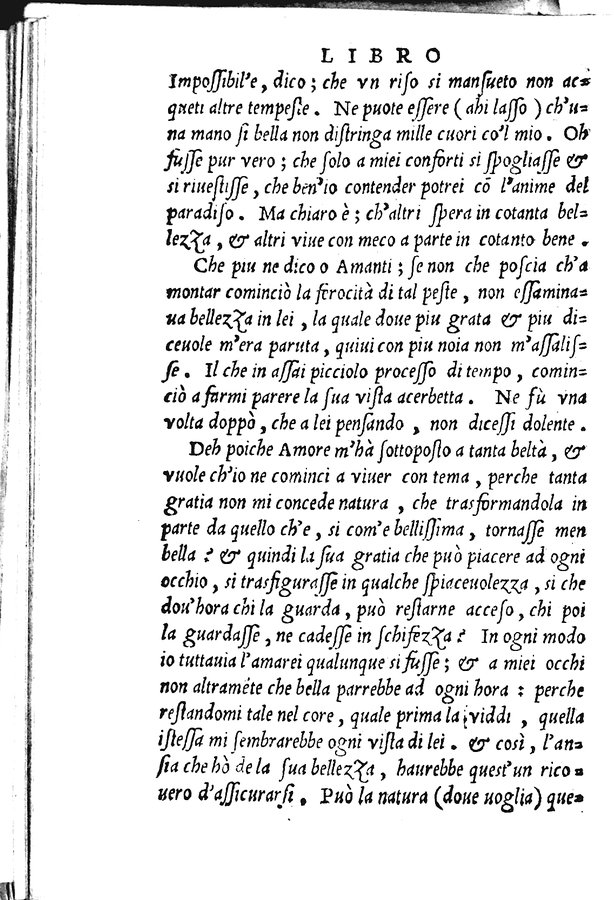 LIBRO
Impoſſibil'e, dico; che vn riſo si manſueto non ac=
queti altre tempeſte. Ne puote eſſere (ahi laſſo) ch'u=
na mano ſi bella non diſtringa mille cuori co'l mio. Oh
fuſſe pur vero; che ſolo a miei conforti si ſpogliaſſe &
si riueſtiſſe, che ben'io contender potrei cō l'anime del
paradiſo. Ma chiaro è; ch'altri ſpera in cotanta bel=
lezza, & altri viue con meco a parte in cotanto bene.
Che piu ne dico o Amanti; ſe non che poſcia ch'a
montar cominciò la ferocità di tal peſte, non eſſamina=
ua bellezza in lei, la quale doue piu grata & piu di=
ceuole m'era paruta, quiui con piu noia non m'aſſaliſ=
ſe. Il che in aſſai picciolo proceſſo di tempo, comin=
ciò a farmi parere la ſua viſta acerbetta. Ne fù vna
volta doppò, che a lei penſando, non diceſſi dolente.
Deh poiche Amore m'hà ſottopoſto a tanta beltà, &
vuole ch'io ne cominci a viuer con tema, perche tanta
gratia non mi concede natura, che trasformandola in
parte da quello ch'e, si com'e belliſſima, tornaſſe men
bella? & quindi la ſua gratia che può piacere ad ogni
occhio, si trasfiguraſſe in qualche ſpiaceuolezza, si che
dou'hora chi la guarda, può reſtarne acceſo, chi poi
la guardaſſe, ne cadeſſe in ſchifezza? In ogni modo
io tuttauia l'amarei qualunque si fuſſe; & a miei occhi
non altramēte che bella parrebbe ad ogni hora: perche
reſtandomi tale nel core, quale prima la viddi, quella
iſteſſa mi ſembrarebbe ogni viſta di lei. & così, l'an=
ſia che hò de la ſua bellezza, haurebbe queſt'un rico=
uero d'aſſicurarſi. Può la natura (doue uoglia) que=